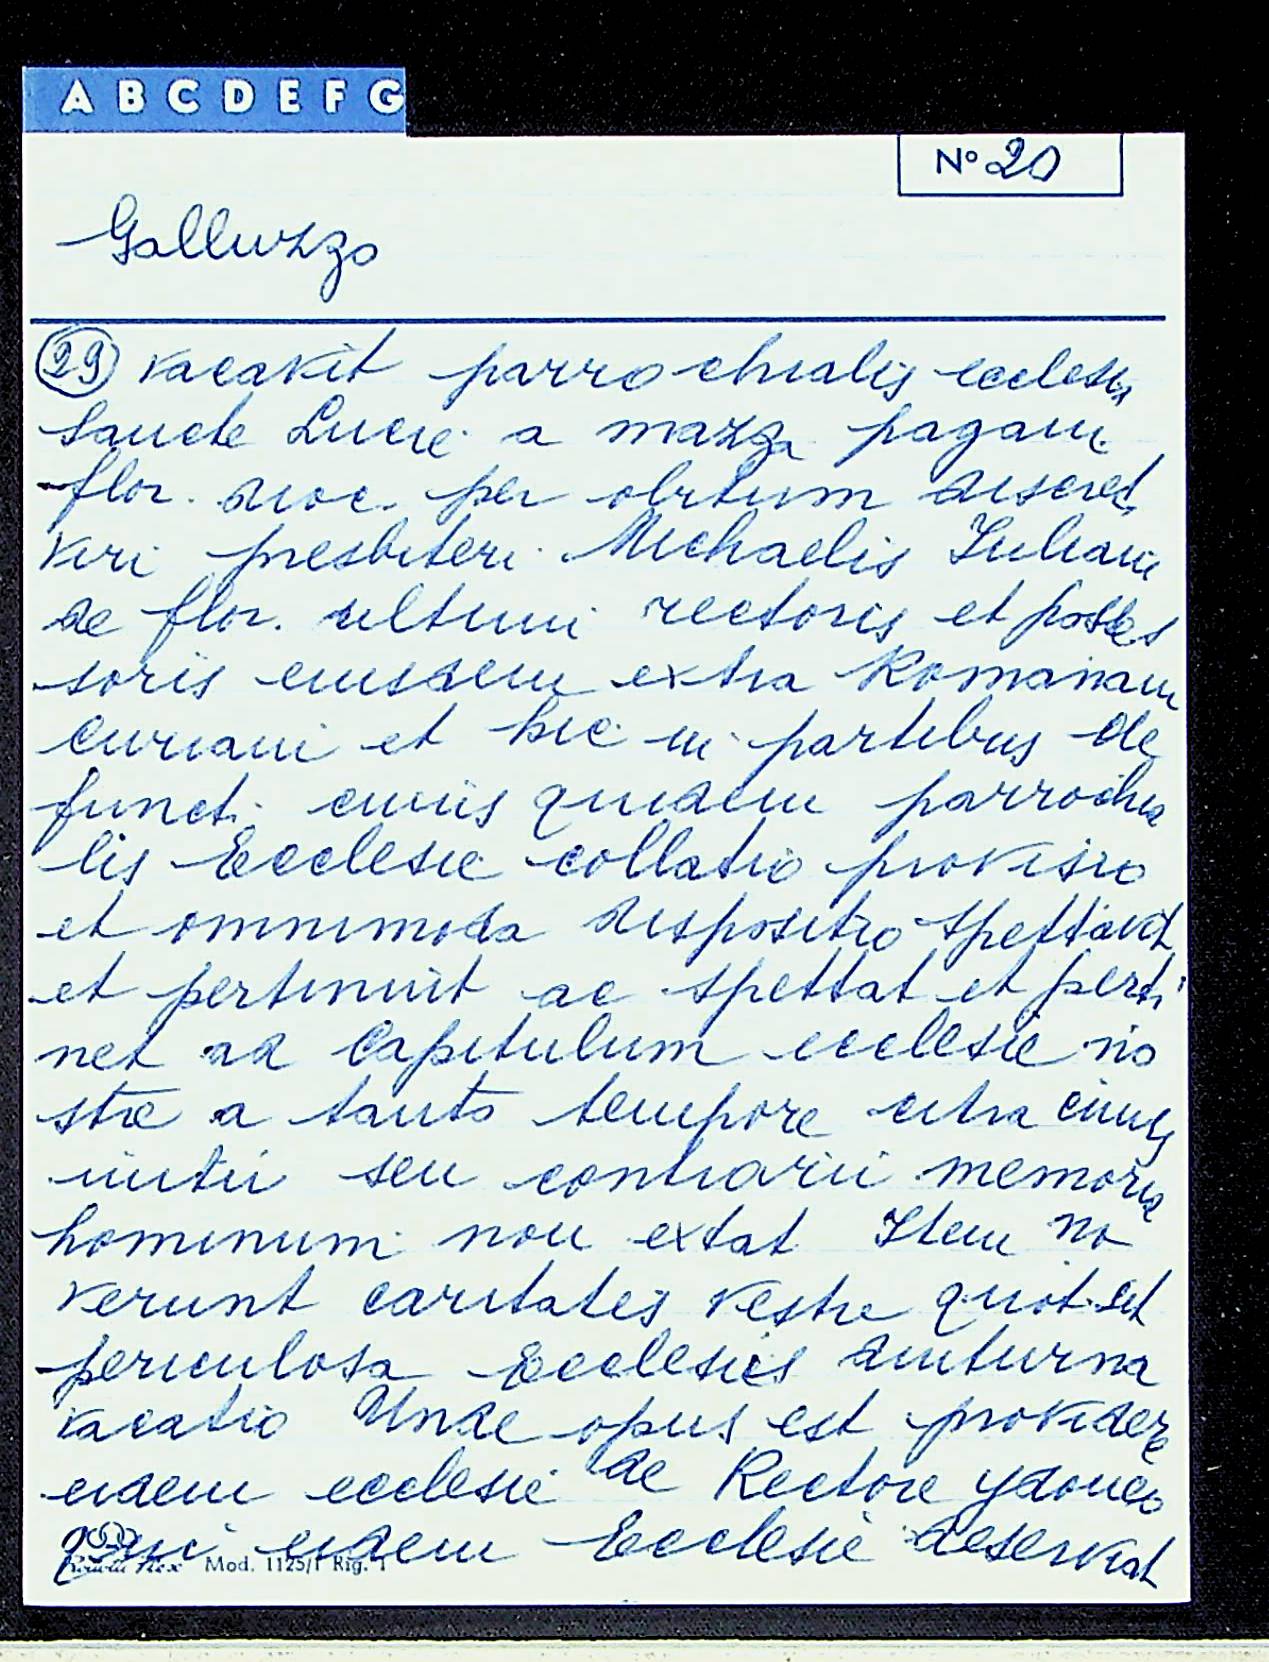 A B C D E F G
N° 20
Galluzzo
29 vacavit parrochialis ecclesia
Sancte Lucie a mazza pagani
flor. dioc. per obitum discret
viri presbiteri Michaelis Iuliani
de flor. ultimi rectoris et posses
soris eiusdem extra Romanam
curiam et hic in partibus de
functi cuius quidem parrochia
lis Ecclesie collatio provisio
et omnimoda dispositio spettavit
et pertinuit ac spettat et perti
net ad Capitulum ecclesie no
stre a tanto tempore citra cuius
initii seu contrarii memoria
hominum non extat Item no
verunt caritates vestre quot sit
periculosa Ecclesiis diuturna
vacatio Unde opus est providere
eidem ecclesie de Rectore ydoneo
qui eidem Ecclesie deserviat
Mod. 1125/1 Rig. 1